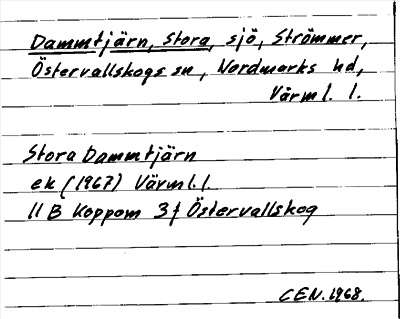 Dammtjärn, Stora, sjö, Strömmer,
Östervallskogs sn, Nordmarks hd,
Värml. l.
Stora Dammtjärn
ek (1967) Värml. l.
11 B Koppom 3f Östervallskog
CEN. 1968.